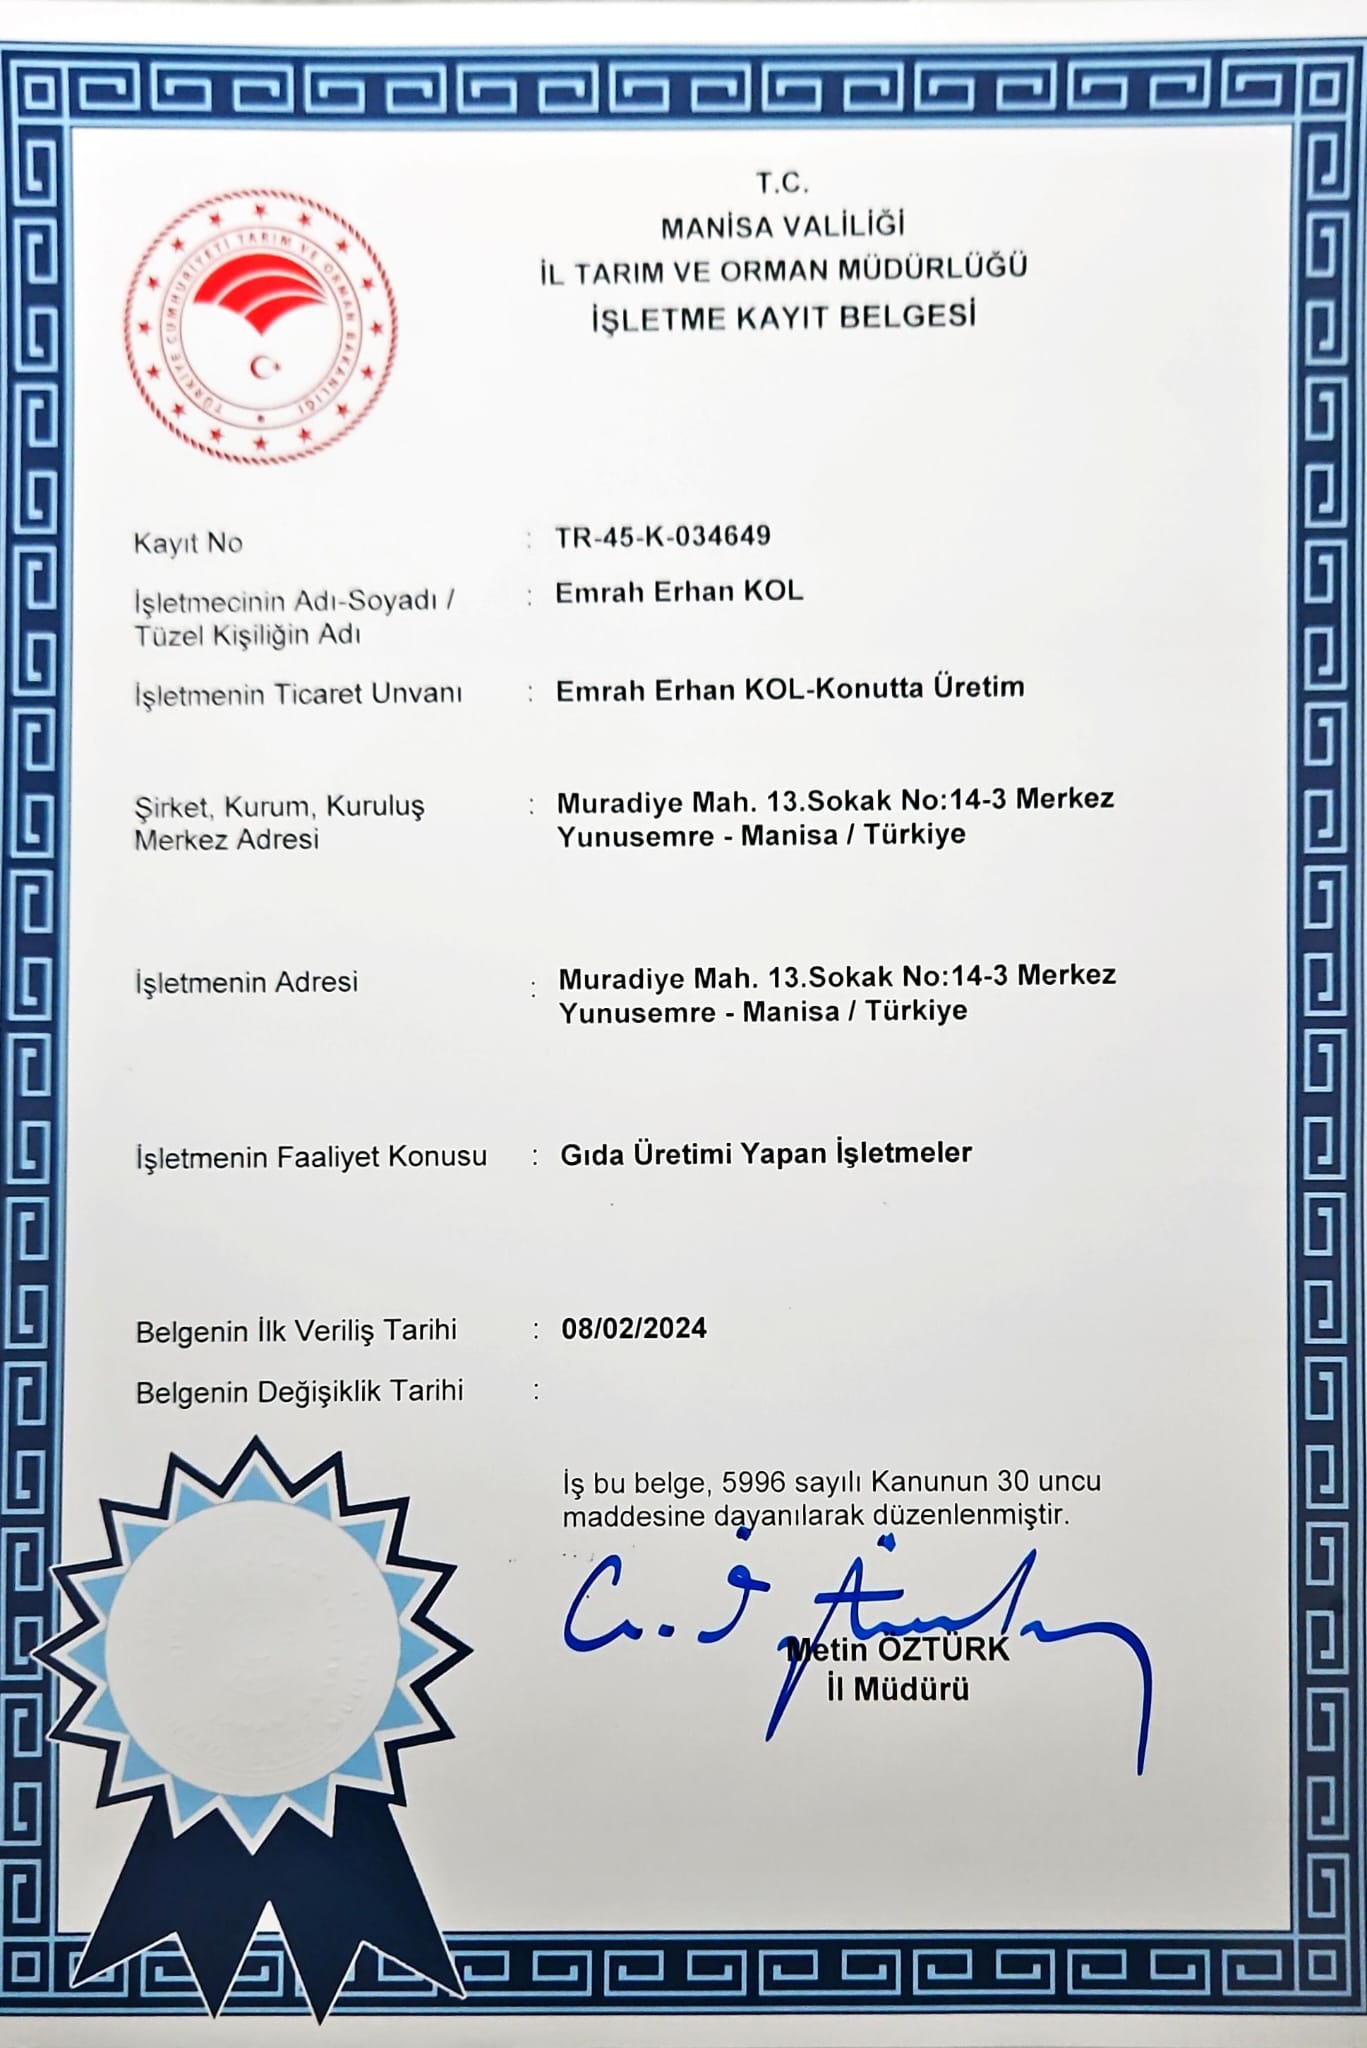 T.C.
MANİSA VALİLİĞİ
İL TARIM VE ORMAN MÜDÜRLÜĞÜ
İŞLETME KAYIT BELGESİ
TÜRKİYE CUMHURİYETİ TARIM VE ORMAN BAKANLIĞI
Kayıt No : TR-45-K-034649
İşletmecinin Adı-Soyadı / : Emrah Erhan KOL
Tüzel Kişiliğin Adı
İşletmenin Ticaret Unvanı : Emrah Erhan KOL-Konutta Üretim
Şirket, Kurum, Kuruluş : Muradiye Mah. 13.Sokak No:14-3 Merkez
Merkez Adresi Yunusemre - Manisa / Türkiye
İşletmenin Adresi : Muradiye Mah. 13.Sokak No:14-3 Merkez
Yunusemre - Manisa / Türkiye
İşletmenin Faaliyet Konusu : Gıda Üretimi Yapan İşletmeler
Belgenin İlk Veriliş Tarihi : 08/02/2024
Belgenin Değişiklik Tarihi :
İş bu belge, 5996 sayılı Kanunun 30 uncu
maddesine dayanılarak düzenlenmiştir.
Metin ÖZTÜRK
İl Müdürü